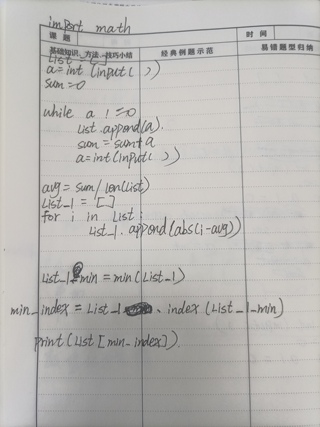 import math
课 题
时 间
基础知识、方法、技巧小结
经典例题示范
易错题型归纳
List = []
a=int(input( ))
sum=0
while a !=0
List.appond(a).
sum=sum+a
a=int(input( ))
avg=sum/len(List)
List_1=[]
for i in List:
List_1.appond(abs(i-avg))
List_1_min=min(List_1)
min_index=List_1.index(List_1_min)
print(List[min_index])